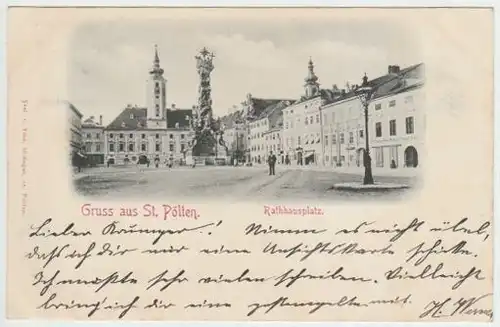 Gruss aus St. Pölten.
Rathhausplatz.
Lieber Krumger! Nimm es nicht übel,
dass ich dir nur eine Ansichtskarte schicke.
Ich musste sehr vielen schreiben. Vielleicht
bring' ich dir eine gestempelte mit. H.